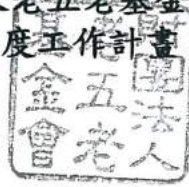 老五老基金
度工作計畫
財團法人
老五老
基金會